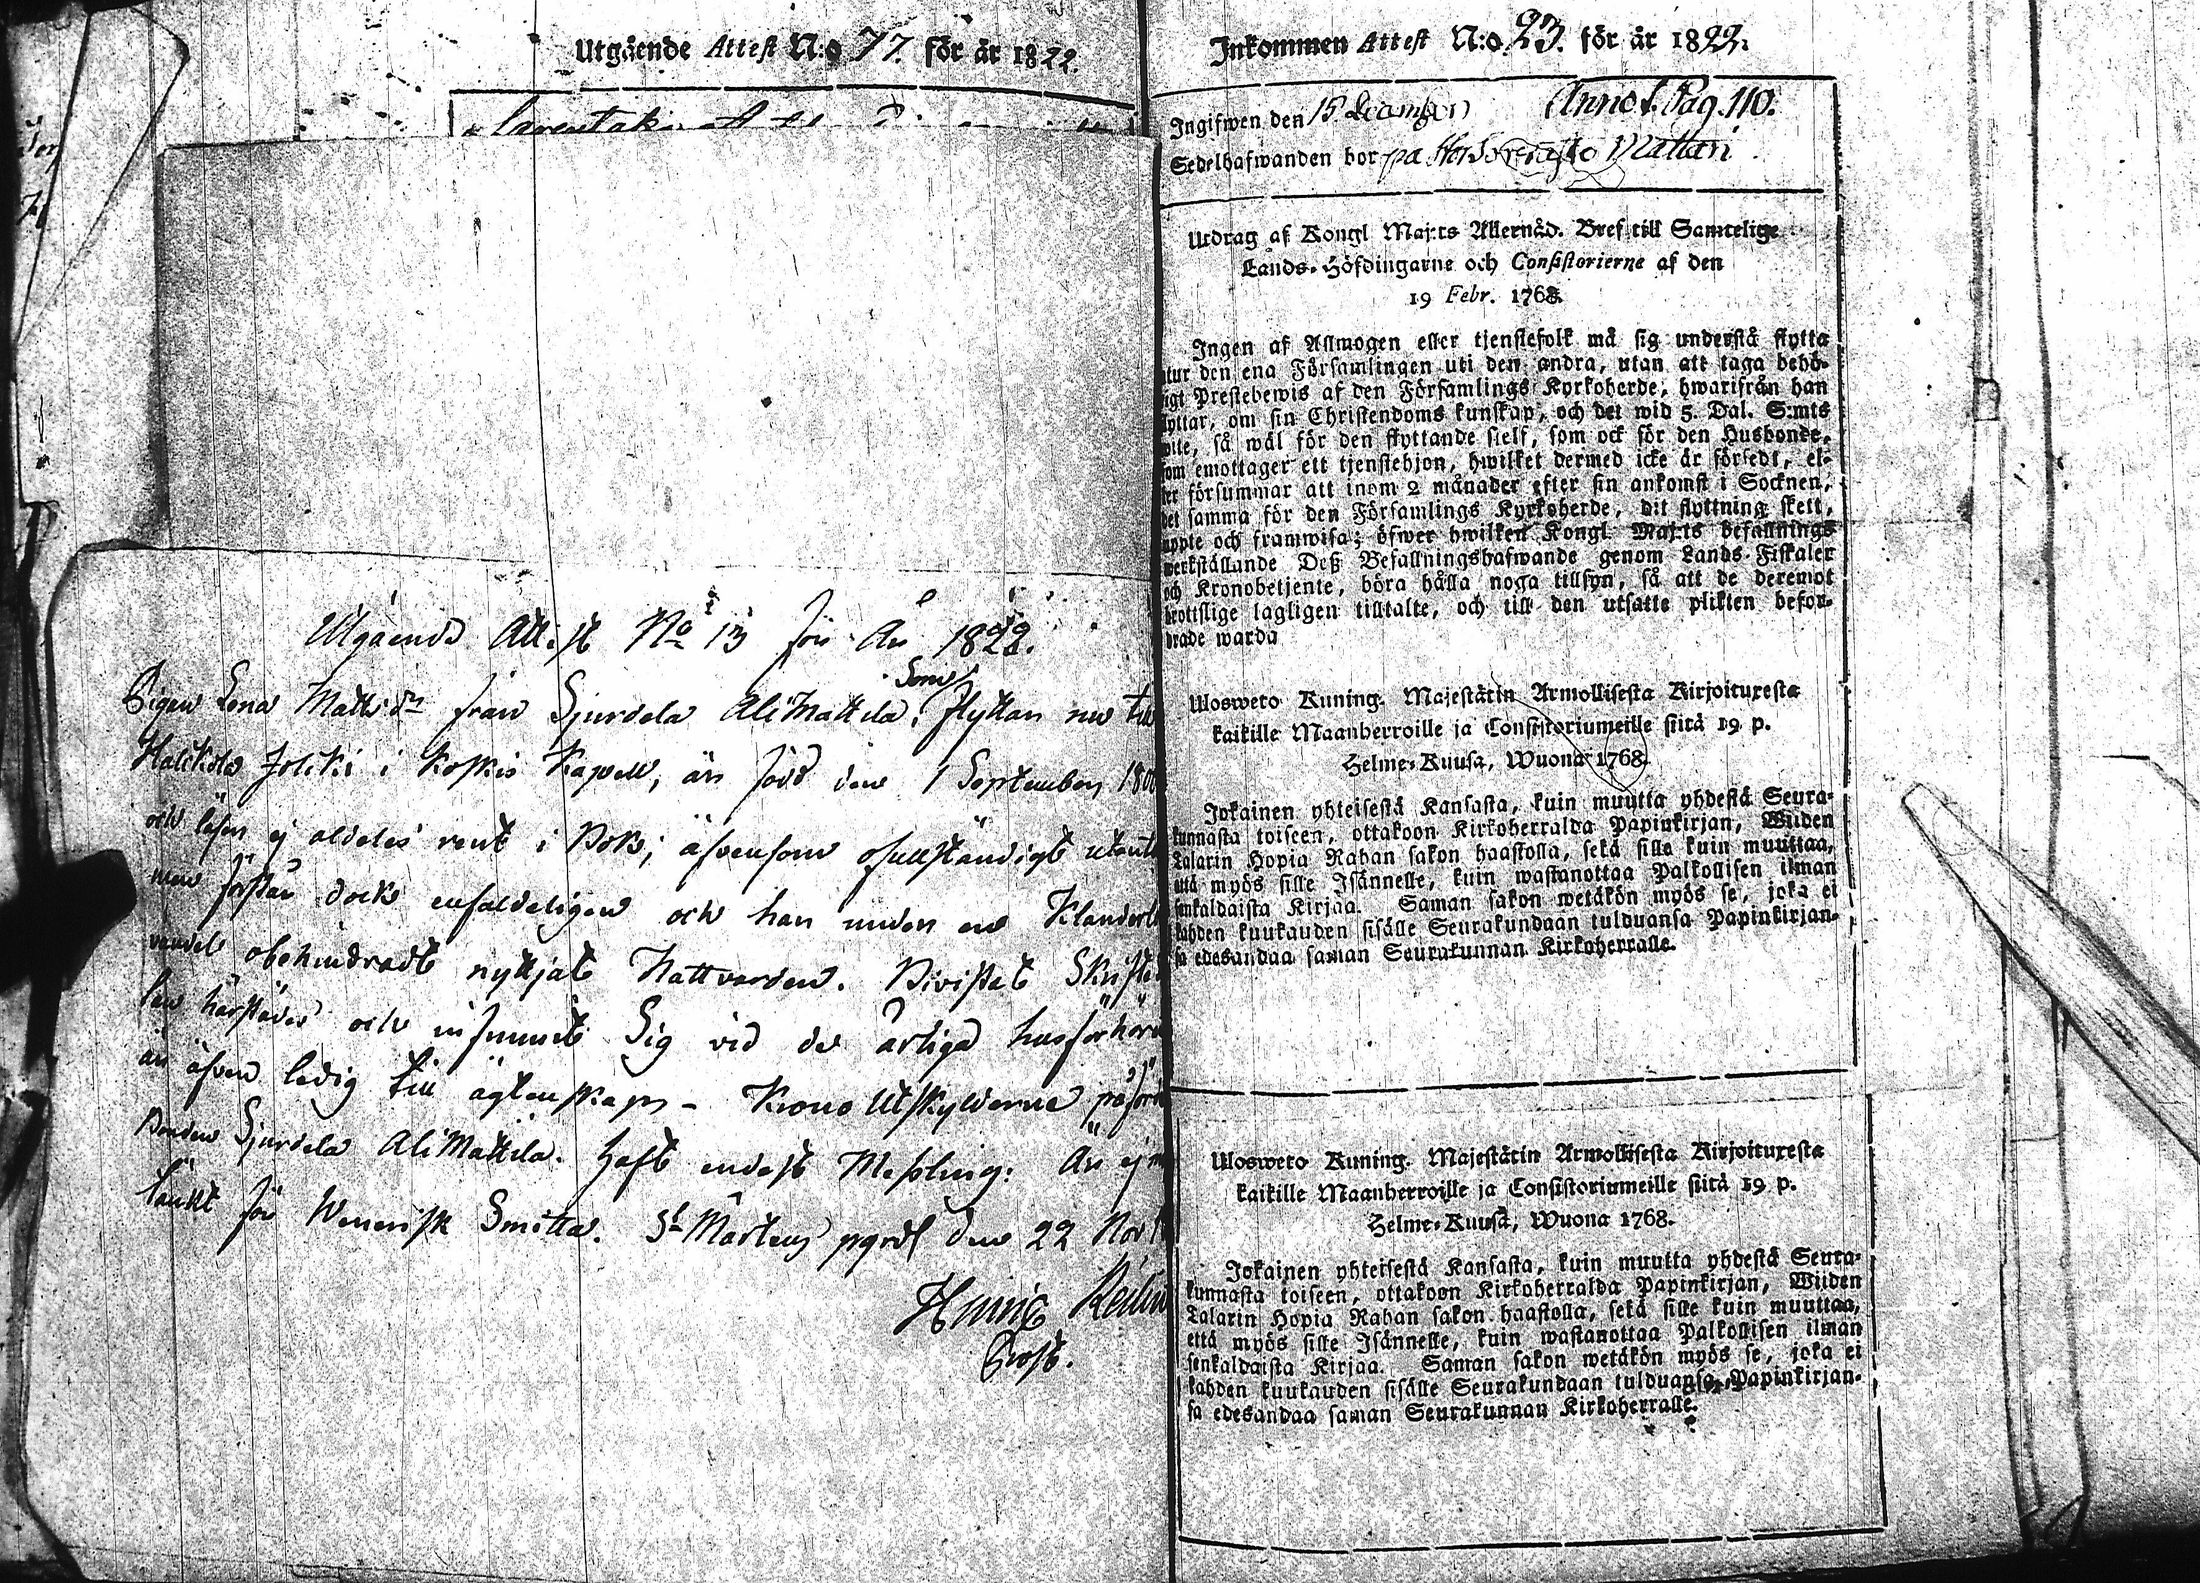 Utgående Attest N:o 77. för år 1822.
Utgående Attest No 13 för År 1822.
Pigan Lena Matts dr från Sjurdela AliMattila, Flyttar nu till
Halikola Joliki i Koskis Kapell, är född den 1 September 180
och läser ej aldeles rent i Bok, äfvensom ofullständigt utant
men förstår dock enfaldeligen och har under en Klanderl
vandel obehindradt nyttjat Nattvarden. Bivistat Skrifte
len härstädes och infunnit Sig vid de årliga husförhör
är äfven ledig till ägtenskap - Krono Utskylderne påför
Sjurdela AliMattila. Haft endast Meßling. Är ej
tänkt för Venerisk Smitta. St Mårtens pgrd den 22 Nov
Henric
Prost.
Inkommen Attest N:o 23. för år 1822.
Ingifwen den 15 December Annot. Pag. 110.
Sedelhafwanden bor på Mattari
Utdrag af Kongl Maj:ts Allernåd. Bref till Samtelige
Lands-Höfdingarne och Consistorierne af den
19 Febr. 1768.
Ingen af Allmogen eller tjenstefolk må sig understå flytta
utur den ena Församlingen uti den andra, utan att taga behö-
igt Prestebewis af den Församlings Kyrkoherde, hwarifrån han
lyttar, om sin Christendoms kunskap, och det wid 5. Dal. S:mts
wite, så wäl för den flyttande sielf, som ock för den Husbonde,
som emottager ett tjenstehjon, hwilket dermed icke är försedt, el-
ler försummar att inom 2 månader efter sin ankomst i Socknen,
det samma för den Församlings Kyrkoherde, dit flyttning skett,
uppte och framwisa; öfwer hwilken Kongl. Maj:ts befallnings
werkställande Deß Befallningshafwande genom Lands Fiskaler
och Kronobetjente, böra hålla noga tillsyn, så att de deremot
brottslige lagligen tilltalte, och till den utsatte plikten befor-
drade warda
Ulosweto Kuning. Majestätin Armollisesta Kirjoituxesta
kaikille Maanherroille ja Consistoriumeille siitä 19 p.
Helme-Kuusa, Wuona 1768.
Jokainen yhteisestä Kansasta, kuin muutta yhdestä Seura-
kunnasta toiseen, ottakoon Kirkoherralda Papinkirjan, Wiiden
Talarin Hopia Rahan sakon haastolla, sekä sille kuin muuttaa,
että myös sille Isännelle, kuin wastanottaa Palkollisen ilman
senkaldaista Kirjaa. Saman sakon wetäkön myös se, joka ei
kahden kuukauden sisälle Seurakundaan tulduansa Papinkirjan-
sa edesandaa saman Seurakunnan Kirkoherralle.
Ulosweto Kuning. Majestätin Armollisesta Kirjoituxesta
kaikille Maanherroille ja Consistoriumeille siitä 19 p.
Helme-Kuusa, Wuona 1768.
Jokainen yhteisestä Kansasta, kuin muutta yhdestä Seura-
kunnasta toiseen, ottakoon Kirkoherralda Papinkirjan, Wiiden
Talarin Hopia Rahan sakon haastolla, sekä sille kuin muuttaa,
että myös sille Isännelle, kuin wastanottaa Palkollisen ilman
senkaldaista Kirjaa. Saman sakon wetäkön myös se, joka ei
kahden kuukauden sisälle Seurakundaan tulduansa Papinkirjan-
sa edesandaa saman Seurakunnan Kirkoherralle.